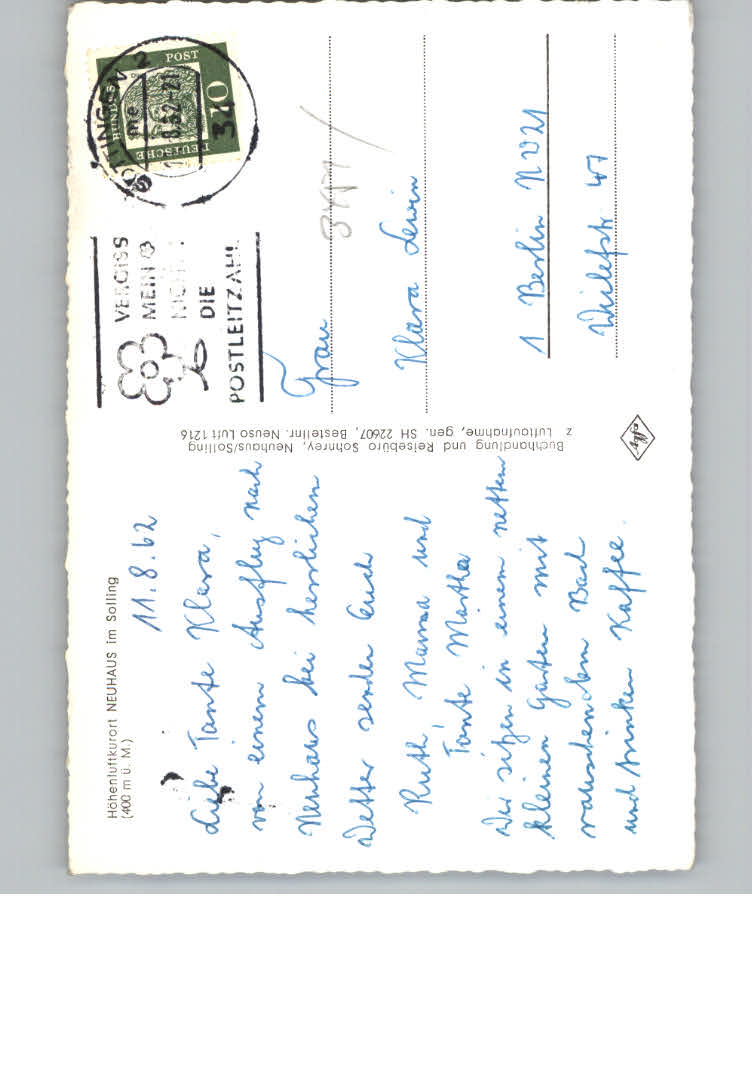 Höhenluftkurort NEUHAUS im Solling
(400 m ü. M.)
11.8.62
Liebe Tante Klara,
von einem Ausflug nach
Neuhaus bei herrlichem
Wetter senden Euch
Ruth, Mama und
Tante Martha
Wir sitzen in einem netten
kleinen Garten mit
rauschendem Bach
und trinken Kaffee.
Buchhandlung und Reisebüro Sohnrey, Neuhaus/Solling
z Luftaufnahme, gen. SH 22607, Bestellnr. Neuso Luft 1216
VERGISS
MEIN
NICHT
DIE
POSTLEITZAHL
GÖTTINGEN 2
34
DEUTSCHE
BUNDESPOST
10
Frau
Klara Lewin
1 Berlin NW21
47